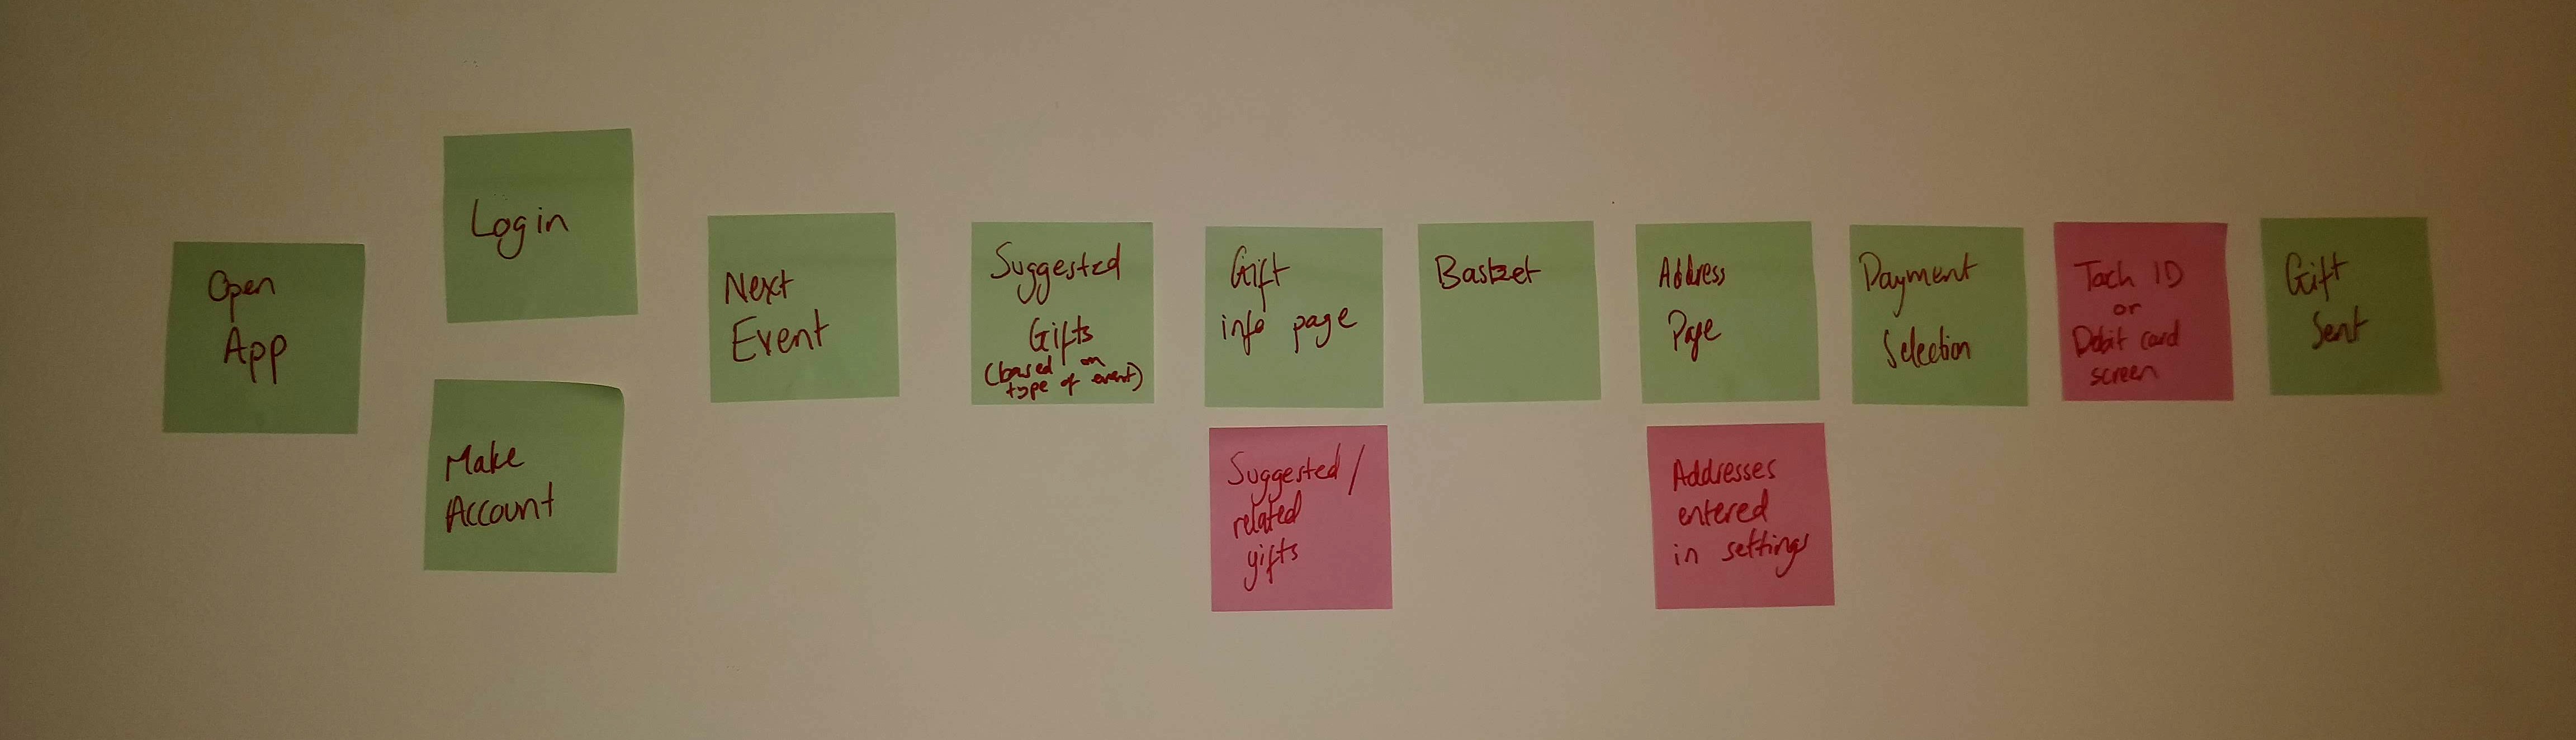 Open
App
Login
Make
Account
Next
Event
Suggested
Gifts
(based on
type of event)
Gift
info page
Suggested /
related
gifts
Basket
Address
Page
Addresses
entered
in settings
Payment
Selection
Touch ID
or
Debit card
screen
Gift
Sent